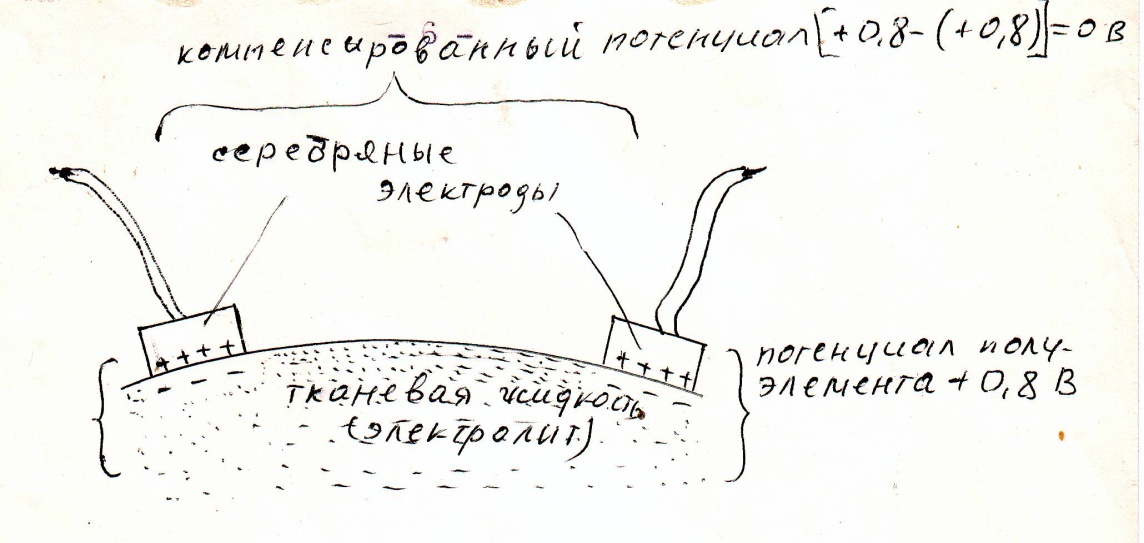 компенсированный потенциал [+0,8-(+0,8)]=0 В
серебряные
электроды
++++
++++
потенциал полу-
элемента +0,8 В
тканевая жидкость
(электралит)